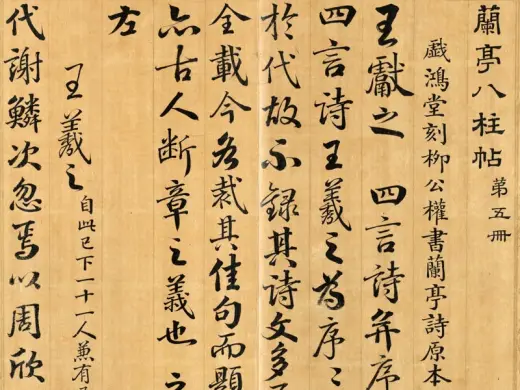 蘭亭八柱帖 第五冊
戲鴻堂刻柳公權書蘭亭詩原本
王獻之 四言詩并序
四言詩王羲之為序〻
於代故不錄其詩文多不
全載今各裁其佳句而題
亦古人斷章之義也
左
王羲之 自此已下一十一人兼有
代謝鱗次忽焉以周欣